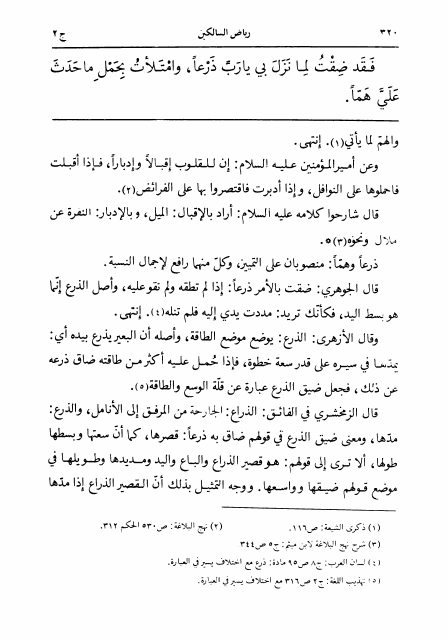 ٣٢٠
رياض السالكين
ج٢
فَقَد ضِقْتُ لِما نَزَلَ بي يارَبِّ ذَرْعاً، وامْتَلأتُ بِحَمْلِ ماحَدَثَ
عَلَيَّ هَمّاً.
والهمّ لما يأتي(١). إنتهى.
وعن أميرالمؤمنين عليه السلام: إن للقلوب إقبالاً وإدباراً، فإذا أقبلت
فاحملوها على النوافل، وإذا أدبرت فاقتصروا بها على الفرائض(٢).
قال شارحوا كلامه عليه السلام: أراد بالإقبال: الميل، وبالإدبار: النفرة عن
ملال ونحوه(٣).
ذرعاً وهمّاً: منصوبان على التمييز، وكلّ منهما رافع لإجمال النسبة.
قال الجوهري: ضقت بالأمر ذرعاً: إذا لم تطقه ولم تقوعليه، وأصل الذرع إنّما
هو بسط اليد، فكأنّك تريد: مددت يدي إليه فلم تنله(٤). إنتهى.
وقال الأزهري: الذرع: يوضع موضع الطاقة، وأصله أن البعير يذرع بيده أي:
يمدّها في سيره على قدر سعة خطوة، فإذا حُمل عليه أكثر من طاقته ضاق ذرعه
عن ذلك، فجعل ضيق الذرع عبارة عن قلّة الوسع والطاقة(٥).
قال الزمخشري في الفائق: الذراع: الجارحة من المرفق إلى الأنامل، والذرع:
مدّها، ومعنى ضيق الذرع في قولهم ضاق به ذرعاً: قصرها، كما أنّ سعتها وبسطها
طولها، ألا ترى إلى قولهم: هو قصير الذراع والباع واليد ومديدها وطويلها في
موضع قولهم ضيقها وواسعها. ووجه التمثيل بذلك أنّ القصير الذراع إذا مدّها
(١) ذكرى الشيعة: ص١١٦.
(٢) نهج البلاغة: ص٥٣٠ الحكم ٣١٢.
(٣) شرح نهج البلاغة لابن ميثم: ج٥ ص٣٤٤
(٤) لسان العرب: ج٨ ص٩٥ مادة: ذرع مع اختلاف يسير في العبارة.
(٥) تهذيب اللغة: ج٢ ص٣١٦ مع اختلاف يسير في العبارة.